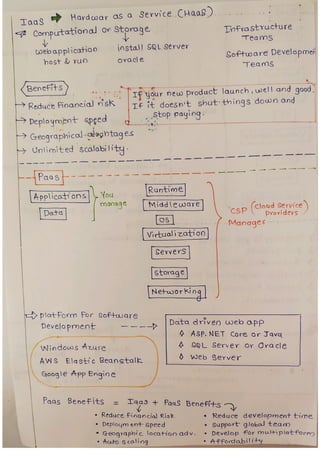 IaaS → Hardwar as a Service (HaaS)
Computational or Storage
Infrastructure
Teams
webapplication
host & run
install SQL Server
oracle
Software Developmen
Teams
Benefits
→ Reduce Financial risk
→ Deployment speed
→ Geographical advantages
→ Unlimited scalability.
If your new product launch, well and good,
If it doesn't shut things down and
stop paying.
PaaS
Applications
Data
You
manage
Runtime
Middleware
OS
Virtualization
Servers
Storage
Networking
CSP (Cloud Service
Providers)
Manages
⇒ platform For Software
Development
Windows Azure
AWS Elastic Beanstalk
Google App Engine
Data driven web app
◊ ASP.NET Core or Java
◊ SQL Server or Oracle
◊ Web Server
Paas Benefits = Iaas + PaaS Benefits
• Reduce Financial Risk
• Deployment speed
• Geographic location adv.
• Auto scaling
• Reduce development time
• Support global team
• Develop for multiplatform
• Affordability